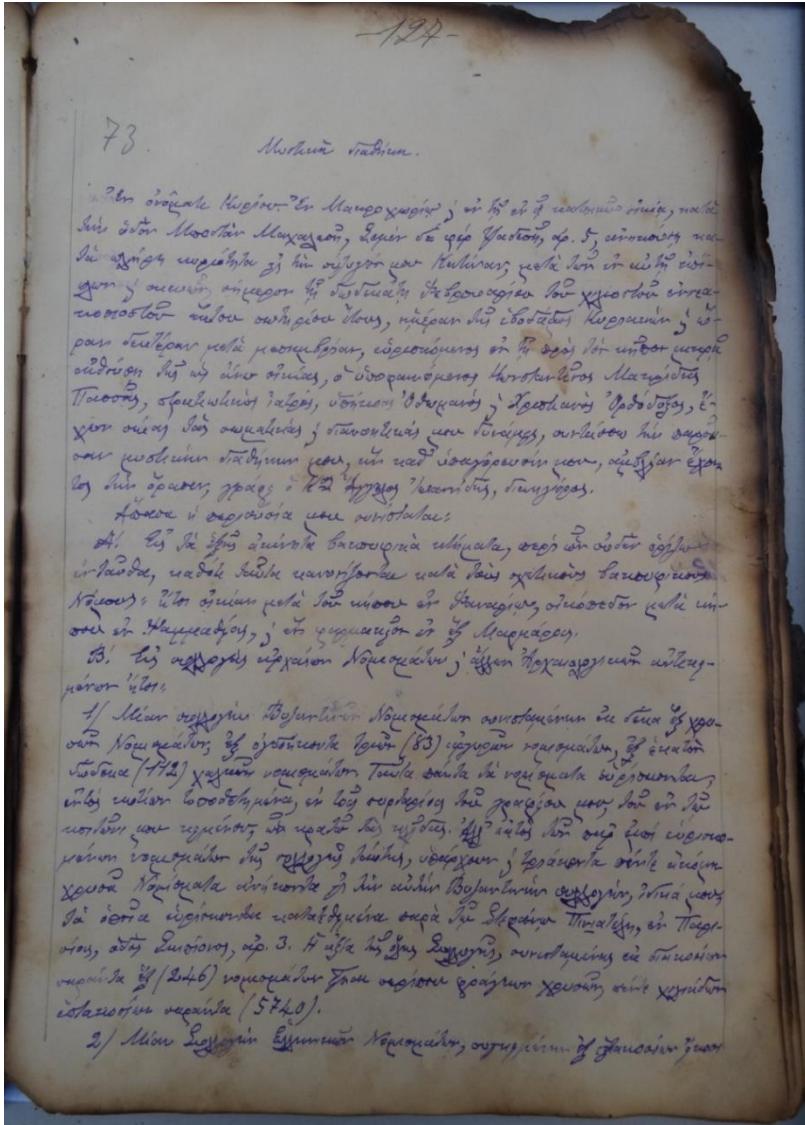 -127-
73.
Μυστικὴ διαθήκη.
Ἐν ὀνόματι Κυρίου. Ἐν Μακροχωρίῳ, ἐν τῇ ἐν ᾗ κατοικῶ οἰκίᾳ, κατὰ
τὴν ὁδὸν Μποστὰν Μαχαλεσῆ, ἀρ. 5, ἀνηκούσῃ κα-
τὰ πλήρη κυριότητα εἰς τὴν σύζυγόν μου Κατίναν, μετὰ τῶν ἐν αὐτῇ ἐπί-
πλων ς σκευῶν σήμερον τῇ δωδεκάτῃ Φεβρουαρίου τοῦ χιλιοστοῦ ἐννεα-
κοσιοστοῦ σωτηρίου ἔτους, ἡμέραν τῆς ἑβδομάδος Κυριακὴν ς ὥ-
ραν δευτέραν μετὰ μεσημβρίαν, εὑρισκόμενος ἐν τῇ πρὸς τὸν κῆπον μικρᾷ
αἰθούσῃ τῆς ὡς ἄνω οἰκίας, ὁ ὑποφαινόμενος Κωνσταντῖνος Μακρίδης
Πασσᾶς, στρατιωτικὸς ἰατρός, ὑπήκοος Ὀθωμανὸς ς Χριστιανὸς Ὀρθόδοξος, ἔ-
χων σώας τὰς σωματικὰς ς διανοητικάς μου δυνάμεις, συντάσσω τὴν παροῦ-
σαν μυστικὴν διαθήκην μου, ἣν καθ' ὑπαγόρευσίν μου, ἀμβλεῖαν ἔχον-
τος τὴν ὅρασιν, γράφει ὁ κος Ἄγγελος Ἰωαννίδης, δικηγόρος.
Ἅπασα ἡ περιουσία μου συνίσταται:
Α'. Εἰς τὰ ἑξῆς ἀκίνητα βακουφικὰ κτήματα, περὶ ὧν οὐδὲν
ἐνταῦθα, καθότι ταῦτα κανονίζονται κατὰ τοὺς σχετικοὺς βακουφικοὺς
Νόμους: ἤτοι οἰκίαν μετὰ τοῦ κήπου ἐν Φαναρίῳ, οἰκόπεδον μετὰ κή-
που ἐν Ψαμμαθείοις, ς ἓν φαρμακεῖον ἐν Μαρμάρας.
Β'. Εἰς συλλογὰς ἀρχαίων Νομισμάτων ς ἄλλων Ἀρχαιολογικῶν ἀντικει-
μένων ἤτοι:
1/ Μίαν συλλογὴν Βυζαντινῶν Νομισμάτων συνισταμένην ἐκ δέκα ἓξ χρυ-
σῶν Νομισμάτων, ἐξ ὀγδοήκοντα τριῶν (83) ἀργυρῶν νομισμάτων, ἐξ ἑκατὸν
δώδεκα (112) χαλκῶν νομισμάτων. Ταῦτα πάντα τὰ νομίσματα εὑρίσκονται,
ἐντὸς κυτίων τοποθετημένα, ἐν τοῖς συρταρίοις τοῦ γραφείου μου, τοῦ ἐν τῷ
κοιτῶνί μου κειμένου, ὧν κρατῶ τὰς κλεῖδας. Ἀλλ' ἐκτὸς τῶν παρ' ἐμοὶ εὑρισκο-
μένων νομισμάτων τῆς συλλογῆς ταύτης, ὑπάρχουν ς τριάκοντα πέντε ἀκόμη
χρυσᾶ Νομίσματα ἀνήκοντα εἰς τὴν αὐτὴν Βυζαντινὴν συλλογήν, ἰδικά μου,
τὰ ὁποῖα εὑρίσκονται κατατεθειμένα παρὰ τῷ Στεφάνῳ ἐν Παρι-
σίοις, ὁδὸς Σκιπίονος, ἀρ. 3. Ἡ ἀξία τῆς ὅλης Συλλογῆς, συνισταμένης ἐκ διακοσίων
σαράντα ἓξ (246) νομισμάτων εἶναι περίπου φράγκων χρυσῶν πέντε χιλιάδων
ἑπτακοσίων σαράντα (5740).
2/ Μίαν Συλλογὴν Ἑλληνικῶν Νομισμάτων, συγκειμένην ἐξ ὀκτακοσίων εἴκοσι